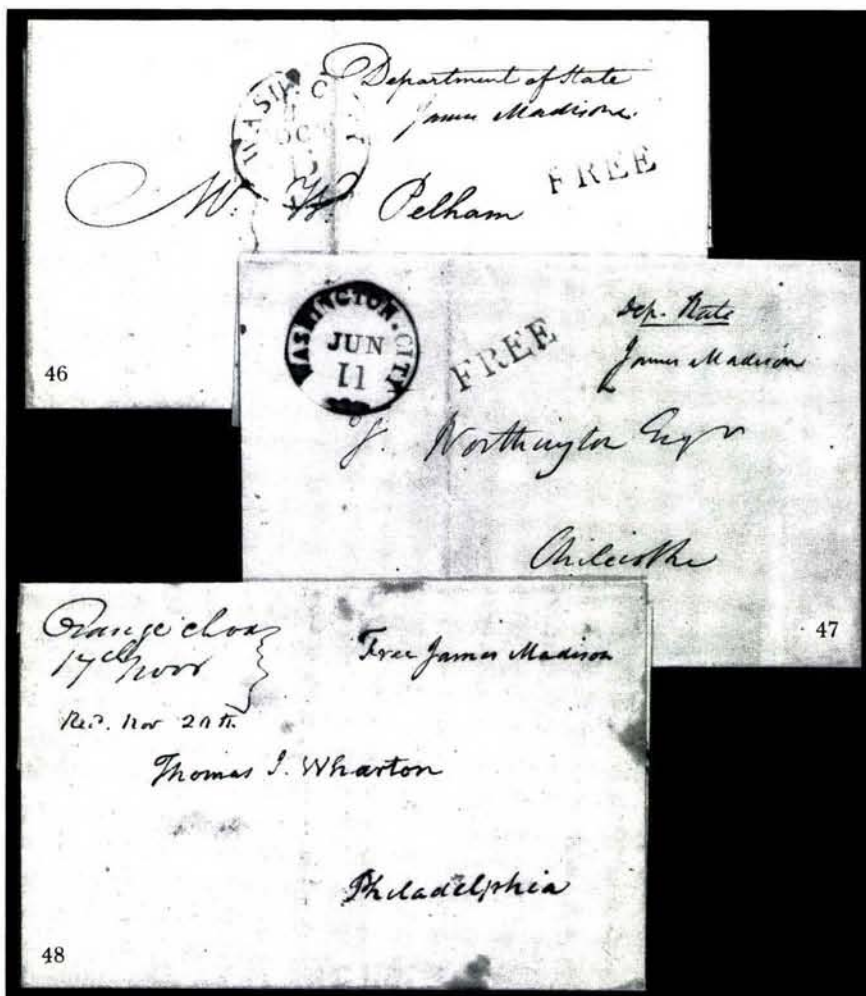 WASH. C
OCT
Department of State
James Madison.
FREE
M. W. Pelham
46
WASHINGTON.CITY
JUN
11
FREE
Dep. State
James Madison
Worthington Esqr
Chilicothe
47
Orange
17th Novr
Free James Madison
Rec. Nov 20th.
Thomas I. Wharton
Philadelphia
48